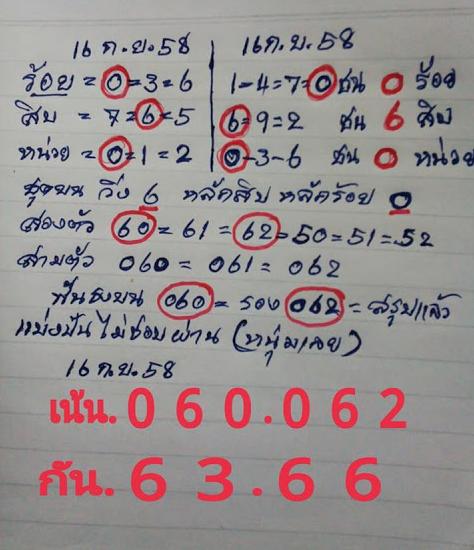 16 ก.ย.58
ร้อย = 0 = 3 = 6
สิบ = 7 = 6 = 5
หน่วย = 0 = 1 = 2
16 ก.ย.58
1-4=7=0 ชน 0 ร้อย
6=9=2 ชน 6 สิบ
0-3-6 ชน 0 หน่วย
ชุดบน วิ่ง 6 หลักสิบ หลักร้อย 0
สองตัว 60 = 61 = 62 = 50 = 51 = 52
สามตัว 060 = 061 = 062
ฟันธงบน 060 = รอง 062 = สรุปแล้ว
แบ่งปัน ไม่ชอบ ผ่าน (หนุ่มเลย)
16 ก.ย.58
เน้น.060.062
กัน.63.66